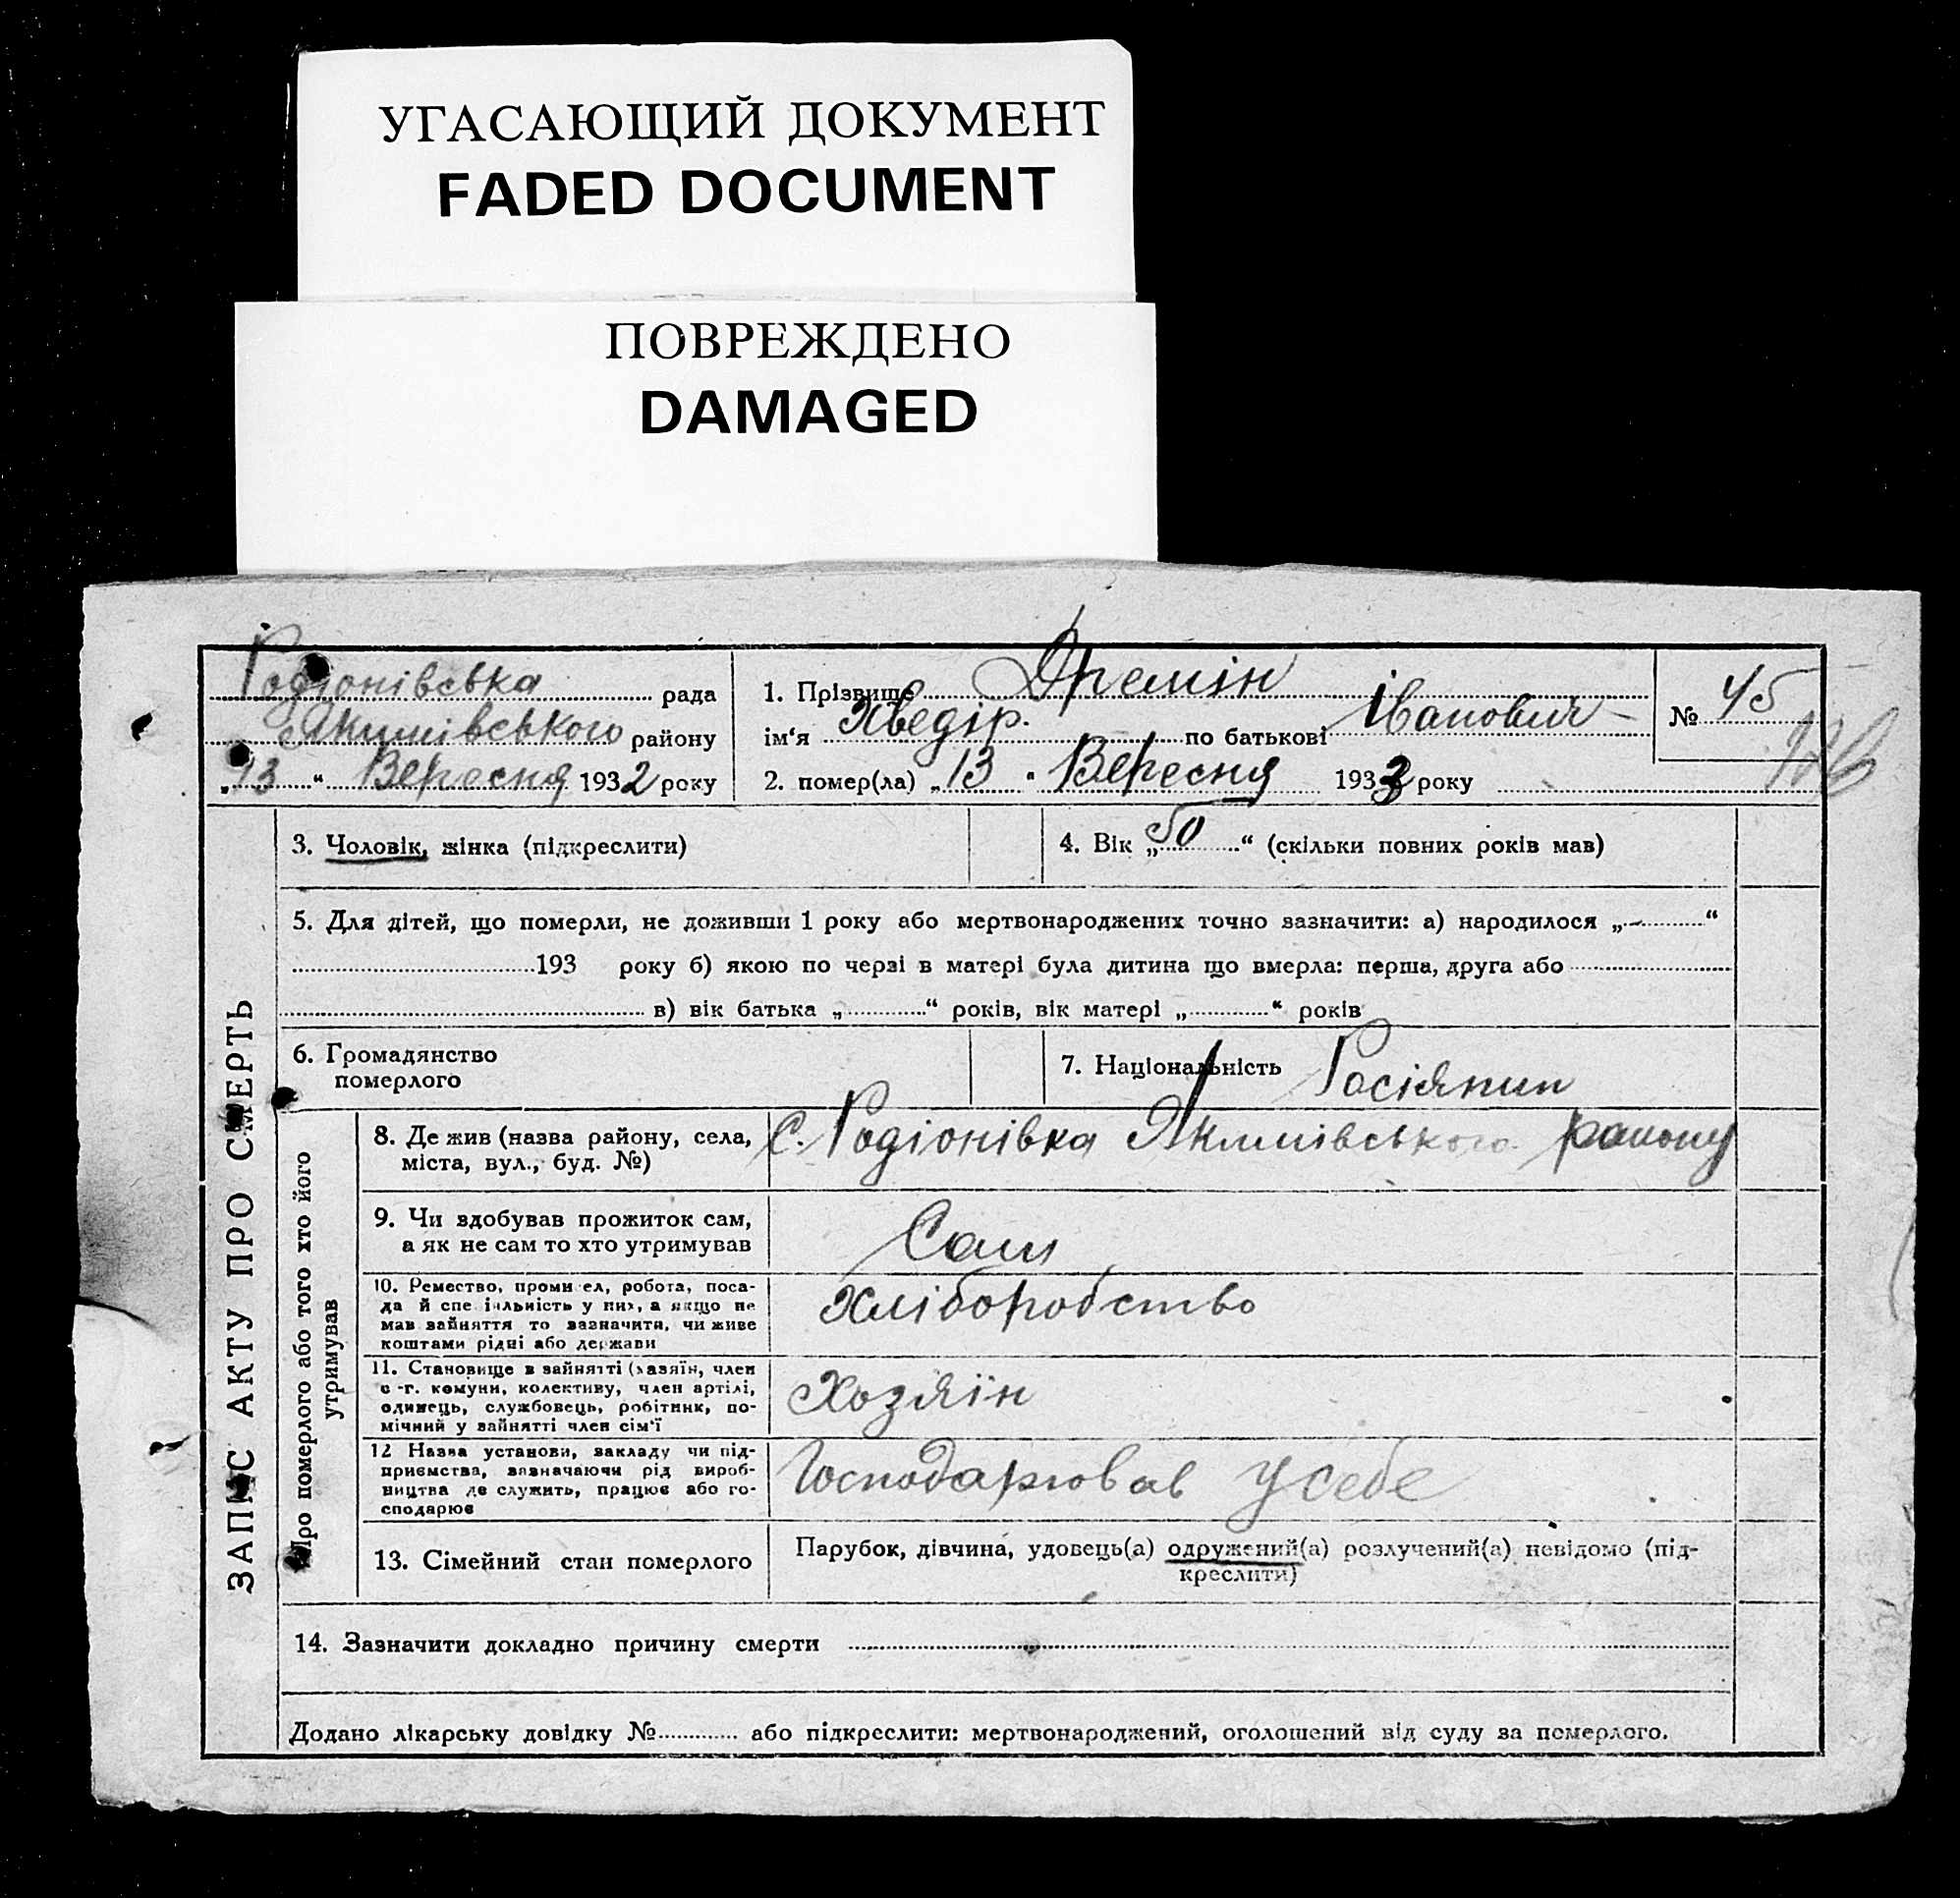 УГАСАЮЩИЙ ДОКУМЕНТ
FADED DOCUMENT
ПОВРЕЖДЕНО
DAMAGED
Родіонівська рада
Якимівського району
„13“ Вересня 1932 року
1. Прізвище Дремін
ім'я Хведір. по батькові Іванович
2. помер(ла) „13 " Вересня 1932 року
№ 45
ЗАПИС АКТУ ПРО СМЕРТЬ
3. Чоловік, жінка (підкреслити)
4. Вік „50“ (скільки повних років мав)
5. Для дітей, що померли, не доживши 1 року або мертвонароджених точно зазначити: а) народилося „-“
193 року б) якою по черзі в матері була дитина що вмерла: перша, друга або
в) вік батька „ “ років, вік матері „ “ років
6. Громадянство
померлого
7. Національність Росіянин
Про померлого або того хто його
утримував
8. Де жив (назва району, села,
міста, вул., буд. №)
с. Родіонівка Якимівського району
9. Чи здобував прожиток сам,
а як не сам то хто утримував
Сам
10. Ремество, промисел, робота, поса-
да й спеціяльність у них, а якщо не
мав зайняття то зазначити, чи живе
коштами рідні або держави
Хліборобство
11. Становище в зайнятті (хазяїн, член
с-г. комуни, колективу, член артілі,
одинець, службовець, робітник, по-
мічний у зайнятті член сім'ї
Хозяїн
12 Назва установи, закладу чи під-
приємства, зазначаючи рід вироб-
ництва де служить, працює або го-
сподарює
Господарював у себе
13. Сімейний стан померлого
Парубок, дівчина, удовець(а) одружений(а) розлучений(а) невідомо (під-
креслити)
14. Зазначити докладно причину смерти
Додано лікарську довідку № або підкреслити: мертвонароджений, оголошений від суду за померлого.